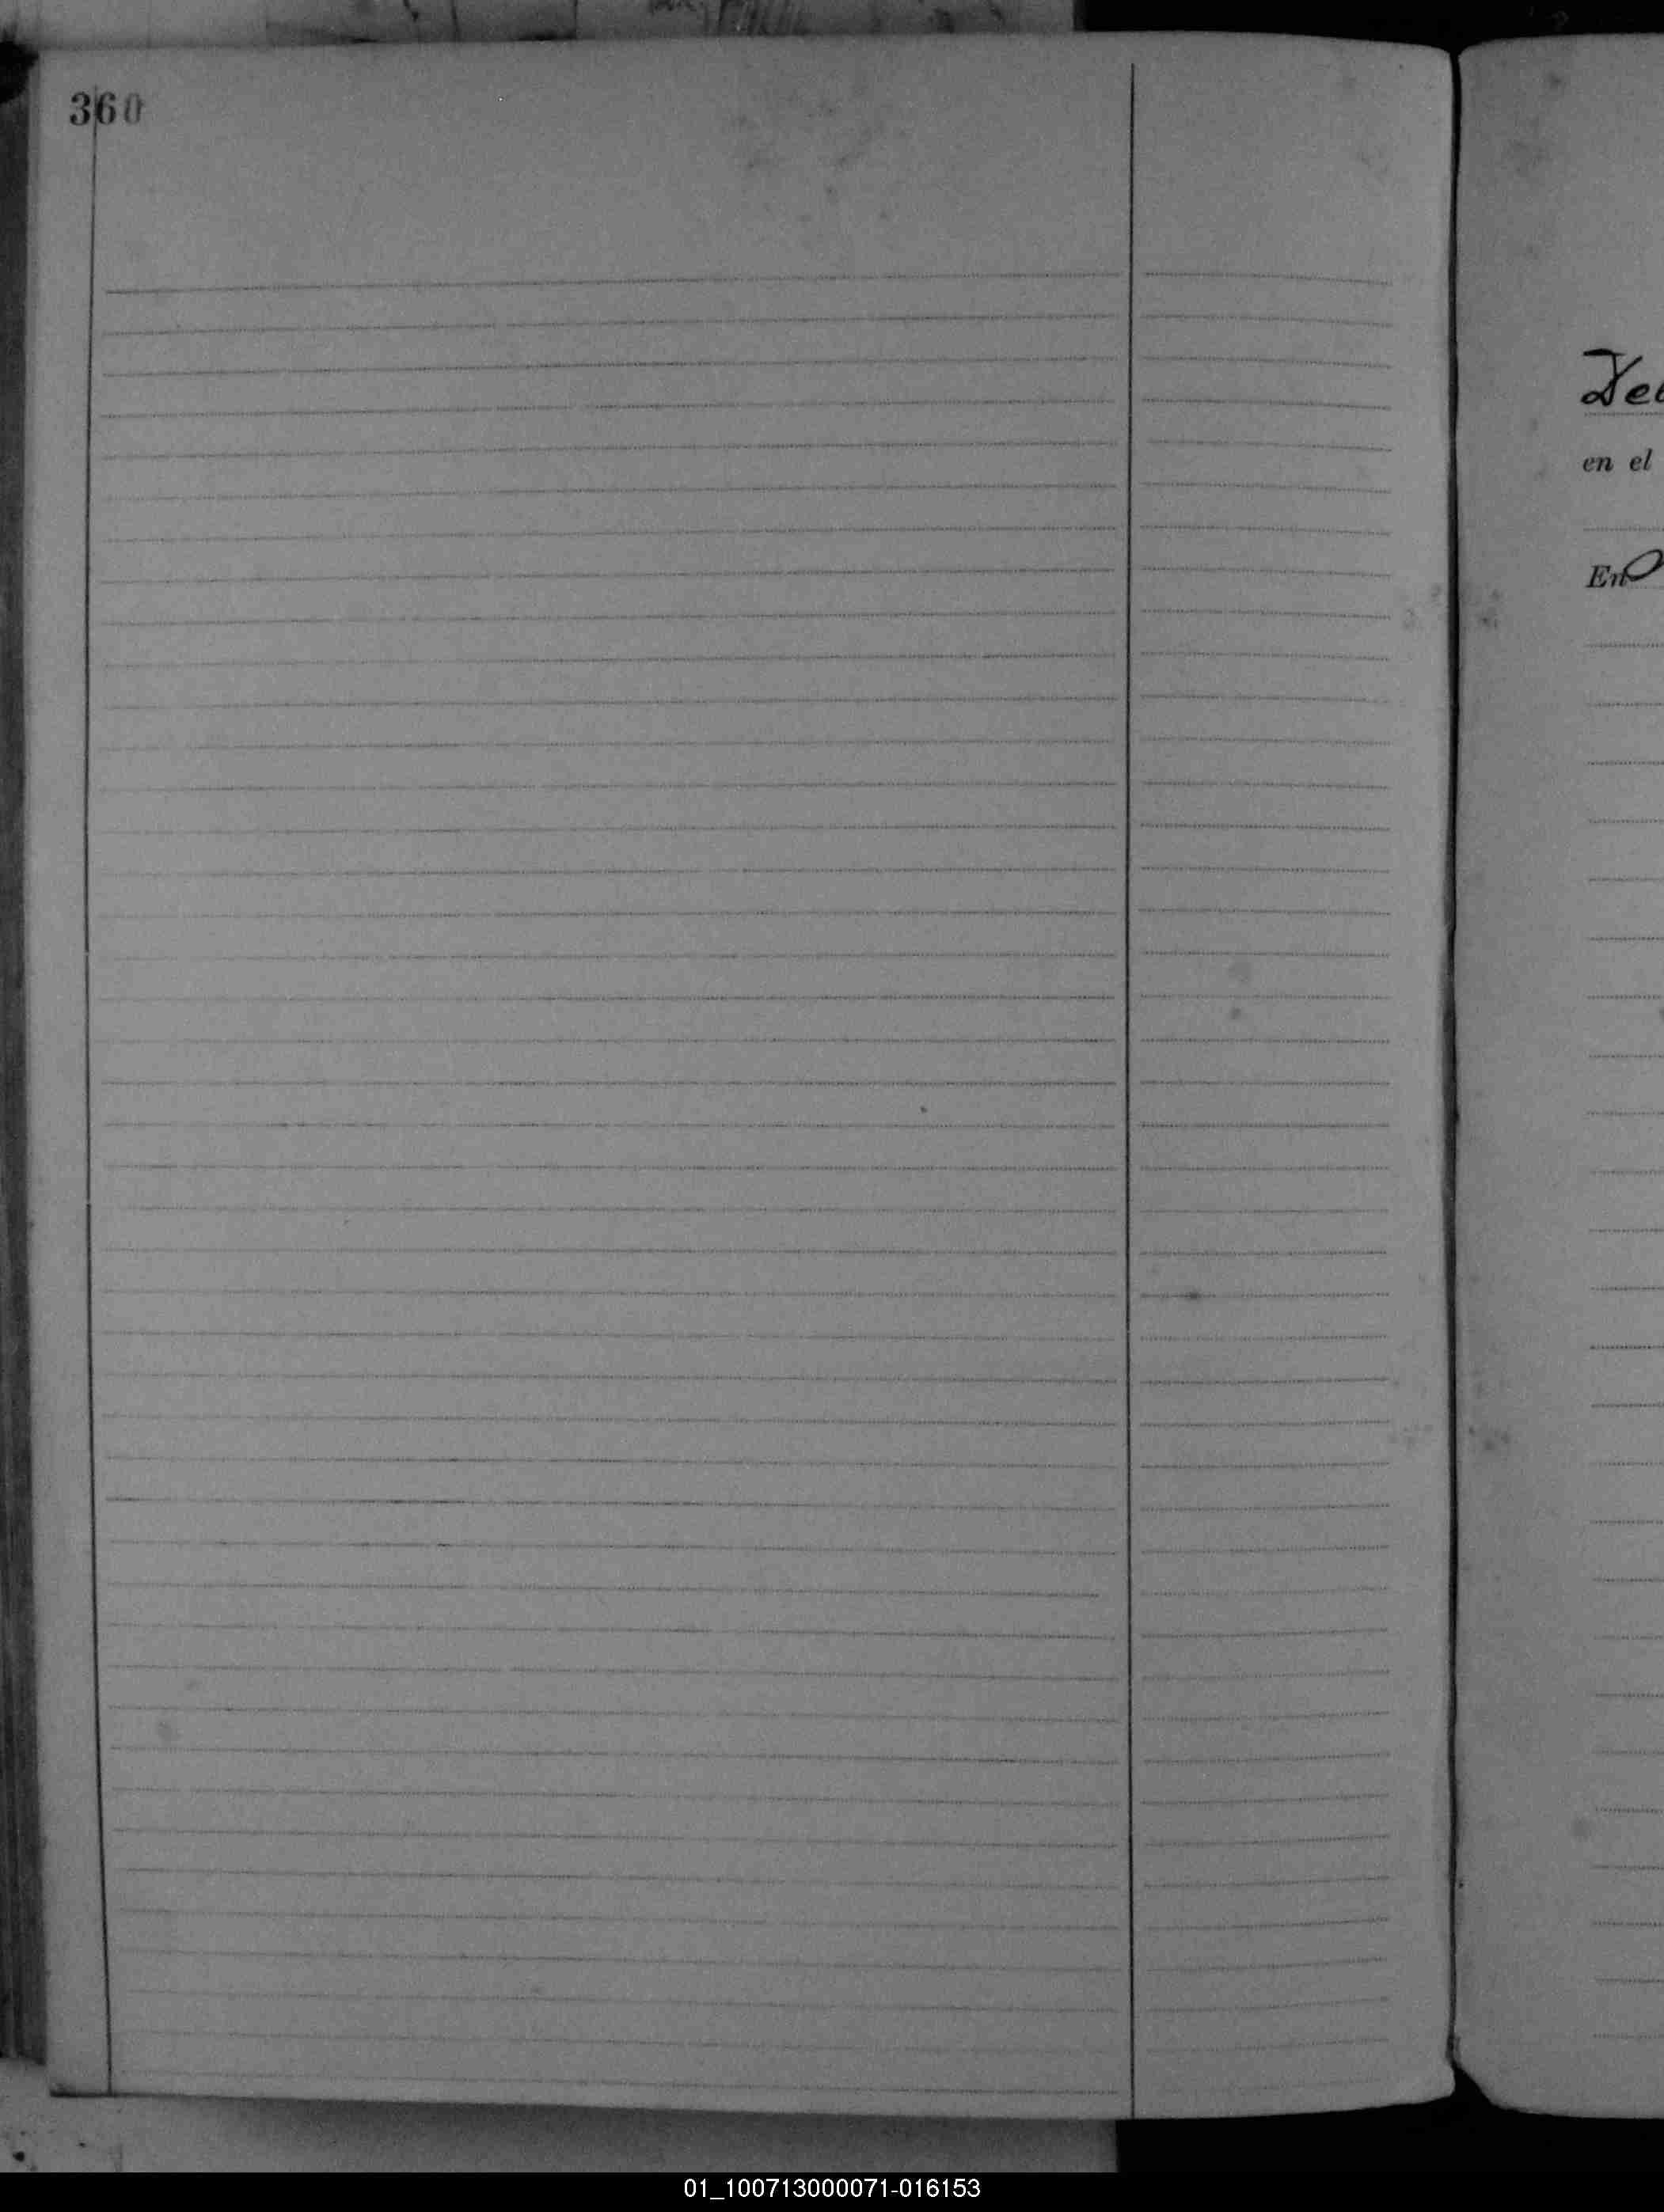 360
en el
En
01_100713000071-016153